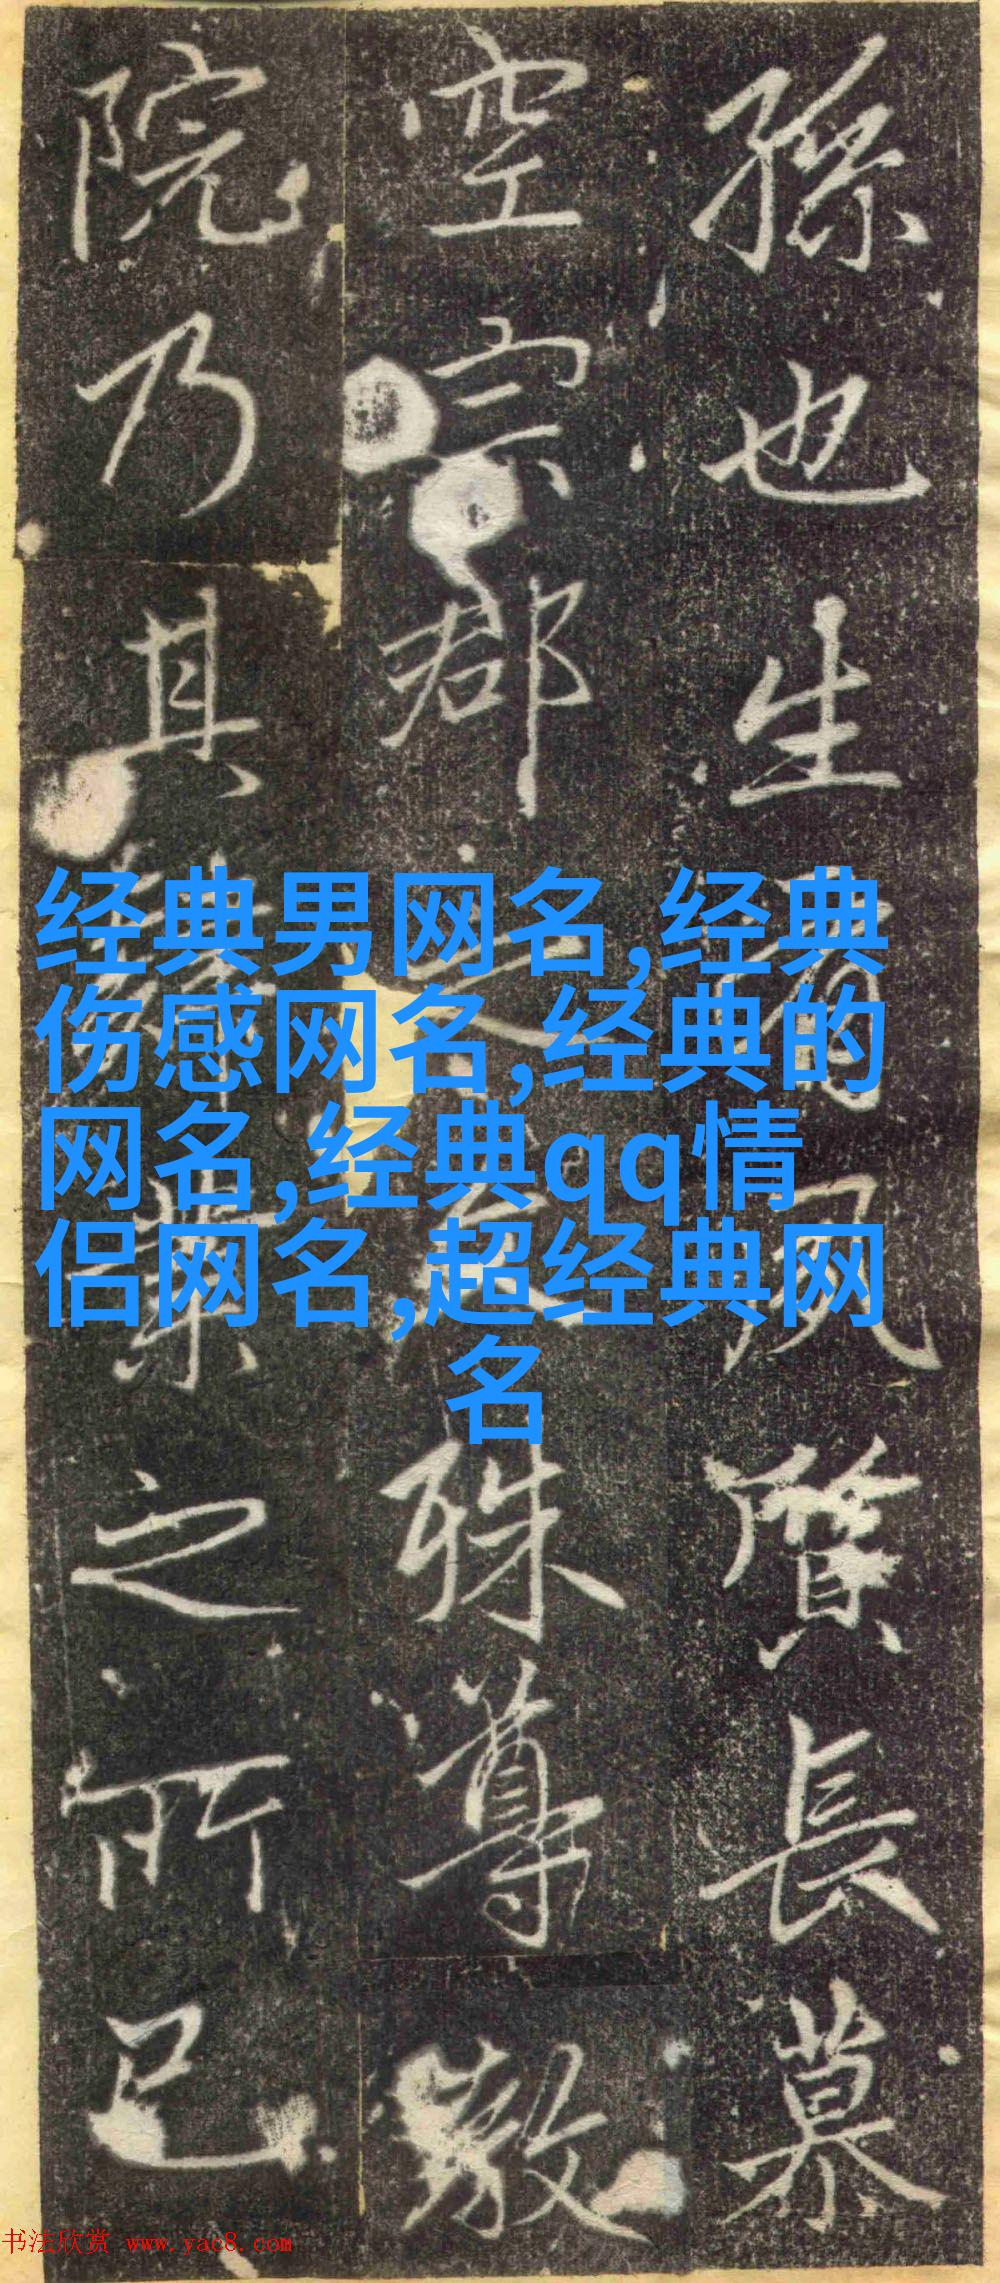 孫也生有風質長慕
空宗郡之殊尊敬
院乃其業之所已
经典男网名,经典
伤感网名,经典的
网名,经典qq情
侣网名,超经典网
名
书法欣赏 www.yac8.com